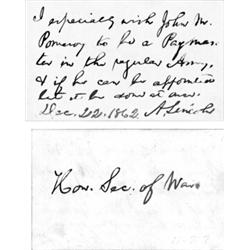 I especially wish John M.
Pomeroy to be a Paymas-
ter in the regular Army,
& if he can be appointed
let it be done at once.
Dec. 22. 1862. A. Lincoln
Hon. Sec. of War